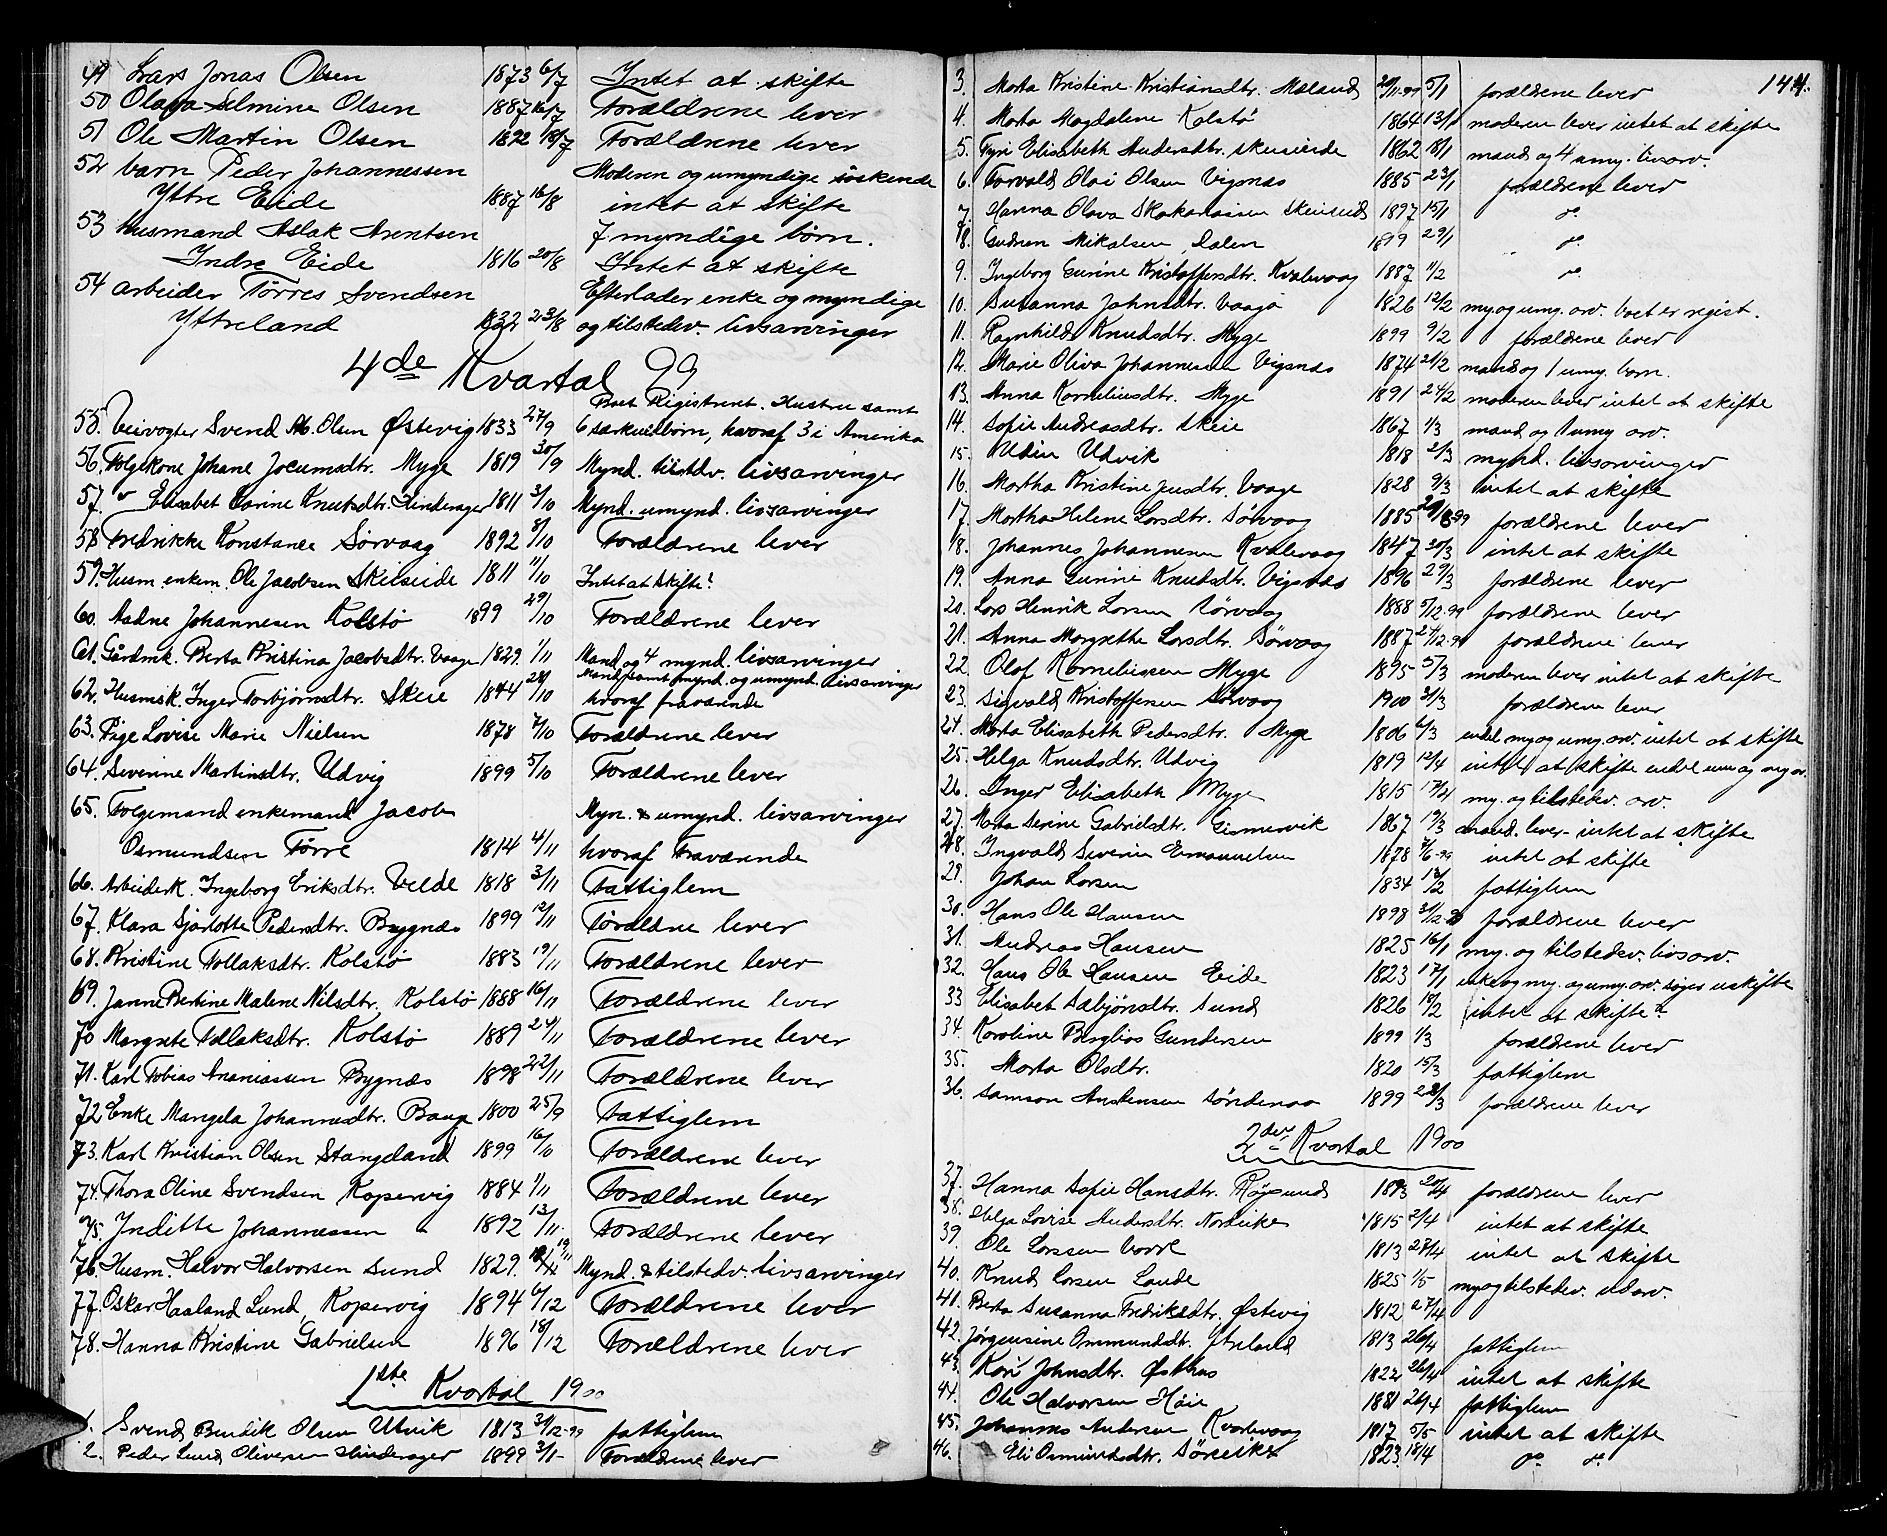 49 Lars Jonas Olsen 1873 6/7 Intet at skifte
50 Olava Selmine Olsen 1887 16/7 Forældrene lever
51 Ole Martin Olsen 1822 18/7 Forældrene lever
52 barn Peder Johannessen Moderen og umyndige søskende
Yttre Eide 1887 16/8 intet at skifte
53 Husmand Aslak Arentsen 7 myndige børn.
Indre Eide 1816 20/8 Intet at skifte
54 arbeider Tørres Svendsen Efterlader enke og myndige
Yttreland 1832 23/8 og tilstedev. livsarvinger
4de Kvartal 99
Boet Registreret. Hustru samt
55. Veivogter Svend Ab. Olsen Østevig 1833 27/9 6 særkuldbørn, hvoraf 3 i Amerika
56. Folgekone Johane Jocumsdtr. Myge 1819 30/9 Mynd. tilstdv. livsarvinger
57. " Elisabet Karine Knutsdtr. Hinderager 1811 3/10 Mynd. umynd. livsarvinger
58 Fredrikke Konstanse Sørvaag 1892 8/10 Forældrene lever
59. Husm. enkem. Ole Jacobsen Skeiseide 1811 11/10 Intet at Skifte
60. Aadne Johannesen Kolstø 1899 29/10 Forældrene lever
61. Gårdmk. Berta Kristina Jacobsdtr. Vaage 1829. 1/11 Mand og 4 mynd. livsarvinger
62. Husmsk. Inger Torbjørnsdtr. Skeie 1844 28/10 Mand samt mynd. og umynd. livsarvinger
hvoraf fraværende
63. Pige Lovise Marie Nielsen 1878 7/10 Forældrene lever
64. Severine Martinsdtr. Udvig 1899 5/10 Forældrene lever
65. Folgemand enkemand Jacob Myn. & umynd. livsarvinger
Osmundsen Førre 1814 4/11 hvoraf fraværende
66. Arbeiderk. Ingeborg Eriksdtr. Velde 1818 3/11 Fattiglem
67. Klara Sjarlotte Pedersdtr. Bygnæs 1899 12/11 Førældrne lever
68. Kristine Tollaksdtr. Kolstø 1883 19/11 Forældrene lever
69. Janne Bertine Malene Nilsdtr. Kolstø 1888 16/11 Forældrene lever
70 Margrete Tollaksdtr. Kolstø 1889 24/11 Forældrene lever
71. Karl Tobias Ananiassen Bygnæs 1898 22/11 Forældrene lever
72 Enke Mangela Johannesdtr. Bauge 1800 25/9 Fattiglem
73. Karl Kristian Olsen Stangeland 1899 16/10 Forældrene lever
74. Thora Oline Svendsen Kopervig 1884 1/11 Forældrene lever
75. Inditte Johannessen " 1892 13/11 Forældrene lever
76. Husm. Halvor Halvorsen Sund 1829. 19/11 Mynd. & tilstedv. livsarvinger
77. Oskar Haaland Lund, Kopervig 1894 6/12 Forældrene lever
78. Hanna Kristine Gabrielsen 1896 18/12 Forældrene lever
1ste Kvartal 1900
1. Svend Bendik Olsen Utvik 1813 31/12-99 fattiglem
2. Peder Lund Oliversen Hinderager 1899 3/1 Forældrene lever
144.
3. Marta Kristine Kristiansdtr. Meland 20/11-99 5/1 forældrene lever
4. Marta Magdalene Kolstø 1864 13/1 moderen lever intet at skifte
5. Tyri Elisabeth Andersdtr. Skeiseide 1862 18/1 mand og 4 umy. livsarv.
6. Torvald Olai Olsen Vigsnæs 1885 23/1 forældrene lever
7. Hanna Olava Skeiseid 1897 15/1 do
8. Gudrun Mikalsen Dalen 1899 29/1 do
9. Ingeborg Gurine Kristoffersdtr. Kvalevaag 1887 11/2 do
10. Susanna Johnsdtr. Vaaga 1826 12/2 my. og umy. arv. boet er regist.
11. Ragnhild Knudsdtr. Myge 1899 9/2 forældrene lever
12. Marie Oliva Johannesen Vigsnæs 1874 21/2 mand og 1 umy. barn.
13. Anna Korneliusdtr. Myge 1891 24/2 moderen lever intet at skifte
14. Sofie Andreasdtr. Skeie 1867 1/3 mand og 1 umy arv.
15. Udvik 1818 2/3 mynd. livsarvinger
16. Martha Kristine Jensdtr. Vaage 1828 9/3 intet at skifte
17. Martha Helene Larsdtr. Sørvaag 1885 forældrene lever
18. Johannes Johannesen Kvalevaag 1847 20/3 intet at skifte
19. Anna Gurine Knudsdtr. Vigsnæs 1896 29/3 forældrene lever
20. Lars Henrik Larsen Sørvaag 1888 5/12-99 forældrene lever
21. Anna Margrethe Larsdtr. Sørvaag 1887 24/12-99 forældrene lever
22 Olaf Korneliussen Myge 1895 5/3 moderen lever intet at skifte
23. Sigvald Kristoffersen Sørvaag 1900 31/3 forældrene lever
24. Marta Elisabeth Pedersdtr. Myge 1806 6/3 my og umy. arv. intet at skifte
25. Helga Knudsdtr. Udvig 1819 12/4 intet at skifte
26. Inger Elisabeth Myge 1815 17/4 my. og tilstedev. arv.
27. Marta Serine Gabrielsdtr. Gismervik 1867 19/3 mand. lever - intet at skifte
28. Ingvald Severin Emanuelsen 1878 7/6-99 intet at skifte
29. Johan Larsen 1834 12/2 fattiglem
30. Hans Ole Hansen 1898 forældrene lever
31. Andreas Hansen 1825 16/1 my. og tilstedev. livsarv.
32. Hans Ole Hansen Eide 1823 17/1 enke og my. og umy. arv. søger uskifte
33 Elisabet Sæbjørnsdtr. Sund 1826 18/2 intet at skifte
34. Karoline Berglios Gundersen 1899 1/3 forældrene lever
35. Marta Olsdtr. 1820 15/3 fattiglem
36. Samson Andersen Søndenaa 1899 22/3 forældrene lever
2det Kvartal 1900
37. Hanna Sofie Hansdtr. Røgsund 1893 20/4 forældrene lever
38. Helga Lovise Andersdtr. Nordvike 1815 2/4 intet at skifte
39. Ole Larssen Vorre 1813 27/4 intet at skifte
40. Knud Larsen Lande 1825 1/5 my og tilstedev. udarv.
41. Berta Susanna Fredriksdtr. Østevig 1812 27/4
42. Jørgensine Ommundsdtr. Ytreland 1813 26/4 fattiglem
43. Kari Johnsdtr. Østhus 1822 26/4 intet at skifte
44. Ole Halvorsen Høie 1881 26/4 fattiglem
45. Johannes Andersen Kvalevaag 1817 5/5 intet at skifte
46. Eli Osmundsdtr. Søreike 1823. 18/4 do do